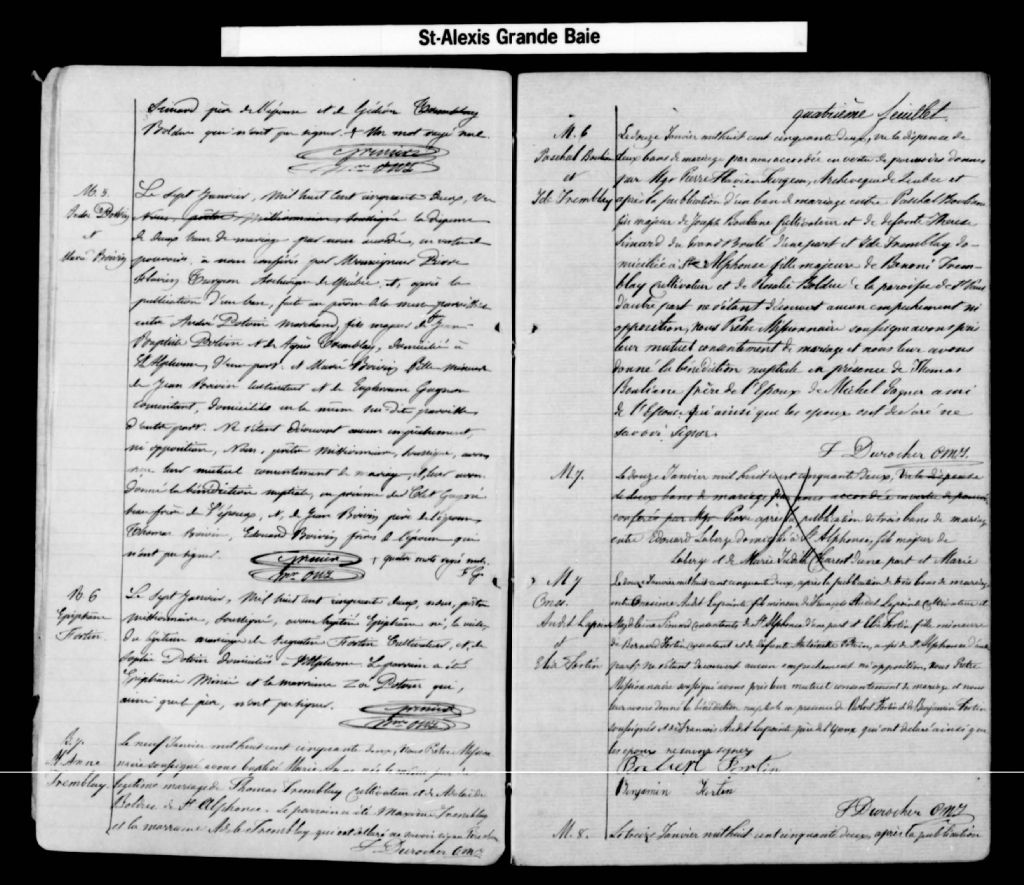 St-Alexis Grande Baie
Simard père de l'épouse et de Gédéon Tremblay
Bolduc qui n'ont pu signer. Un mot rayé nul.
Grenier
Ptre OMI
M. 5.
André Potvin
et
Marie Boivin
Le Sept Janvier, Mil huit cent cinquante deux, Vu
Missionnaire, soussigné la dispense
de deux bans de mariage par nous accordée, en vertu de
pouvoirs, à nous conférés par Monseigneur Pierre
Flavien Turgeon Archevêque de Québec, et, après la
publication d'un ban, faite au prône de la messe paroissiale
entre André Potvin marchand, fils majeur de Jean
Baptiste Potvin et de Agnès Tremblay, domicilié à
St Alphonse, d'une part et Marie Boivin fille mineure
de Jean Boivin cultivateur et de Euphrosine Gagnon
consentant, domiciliés en la même susdite paroisse
d'autre part. Ne s'étant découvert aucun empêchement,
ni opposition, Nous, prêtre missionnaire, soussigné, avons
reçu leur mutuel consentement de mariage, et, leur avons
donné la bénédiction nuptiale, en présence de
frère de l'époux, et, de Jean Boivin père de l'épouse
Thomas Boivin, Edouard Boivin, frères de l'épouse qui
n'ont pu signer. quatre mots rayés nuls.
F. G.
Grenier
Ptre OMI
B. 6
Epiphane
Fortin.
Le Sept Janvier, Mil huit cent cinquante deux, nous, prêtre
missionnaire, soussigné, avons baptisé Epiphane né, la veille,
du légitime mariage de Fortin Cultivateur, et, de
Sophie Potvin domiciliés St Alphonse. Le parrain a été
Epiphane et la marraine Zoé Potvin qui,
ainsi que le père, n'ont pu signer.
Grenier
Ptre OMI
B. 7.
M. Anne
Tremblay.
Le neuf Janvier mil huit cent cinquante deux, nous Prêtre Mission-
naire soussigné avons baptisé Marie Anne née le même jour du
légitime mariage de Thomas Tremblay cultivateur et de Adelaide
Boldue de St Alphonse. Le parrain a été Maxime Tremblay
et la marraine Adele Tremblay qui ont déclaré ne savoir signer
F. Durocher OMI
quatrième feuillet
M. 6
Paschal Bouliane
et
Ide. Tremblay
Le douze Janvier mil huit cent cinquante deux, vu la dispense de
deux bans de mariage par nous accordée en vertu de pouvoirs donnés
par Mgr Pierre Flavien Turgeon, Archevêque de Québec et
après la publication d'un ban de mariage entre Paschal Bouliane
fils majeur de Joseph Bouliane Cultivateur et de défunte Therese
Simard du Grand Brulé d'une part et Ide Tremblay do-
miciliée à St Alphonse fille majeure de Benoni Trem-
blay Cultivateur et de Rosalie Boldue de la paroisse de
d'autre part ne s'étant découvert aucun empêchement ni
opposition, nous Prêtre Missionnaire soussigné avons pris
leur mutuel consentement de mariage et nous leur avons
donné la bénédiction nuptiale en présence de Thomas
Bouliane frère de l'Epoux de Michel Gagné ami
de l'Epouse qui ainsi que les époux ont déclaré ne
savoir signer.
F. Durocher OMI.
M 7.
Le douze Janvier mil huit cent cinquante deux, vu la dispense
de deux bans de mariage par nous accordée en vertu de pouvoirs
conférés par Mgr Pierre après la publication de trois bans de mariage
entre Edouard Laberge domicilié à St Alphonse, fils majeur de
Laberge et de Marie Judith Claret d'une part et Marie
M 7
Ones.
Audet Lapointe
et
Elie. Fortin
Le douze Janvier mil huit cent cinquante deux, après la publication de trois bans de mariage
entre Onesime Audet Lapointe fils mineur de François Audet Lapointe Cultivateur et
Simard consentants de St Alphonse d'une part et fille mineure
de Bernard Fortin consentant et de défunte Potvin, aussi de St Alphonse d'autre
part ne s'étant découvert aucun empêchement ni opposition, nous Prêtre
Missionnaire soussigné avons pris leur mutuel consentement de mariage et nous
leur avons donné la bénédiction nuptiale en présence de Robert Fortin et de Benjamin Fortin
soussignés et de François Audet Lapointe père de l'Epoux qui ont déclaré ainsi que
les époux ne savoir signer
Robert Fortin
Benjamin Fortin
F. Durocher OMI
M. 8.
Le treize Janvier mil huit cent cinquante deux, après la publication